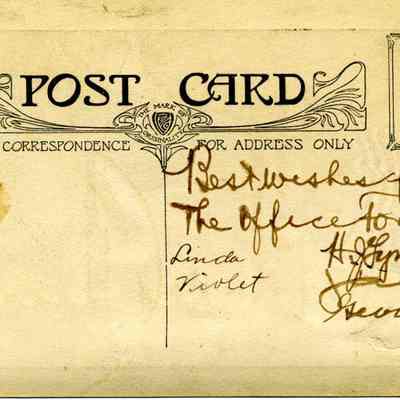 POST CARD
THE MARK OF ORIGINALITY
CORRESPONDENCE
FOR ADDRESS ONLY
Best wishes
The office
Linda
Violet
H.J.